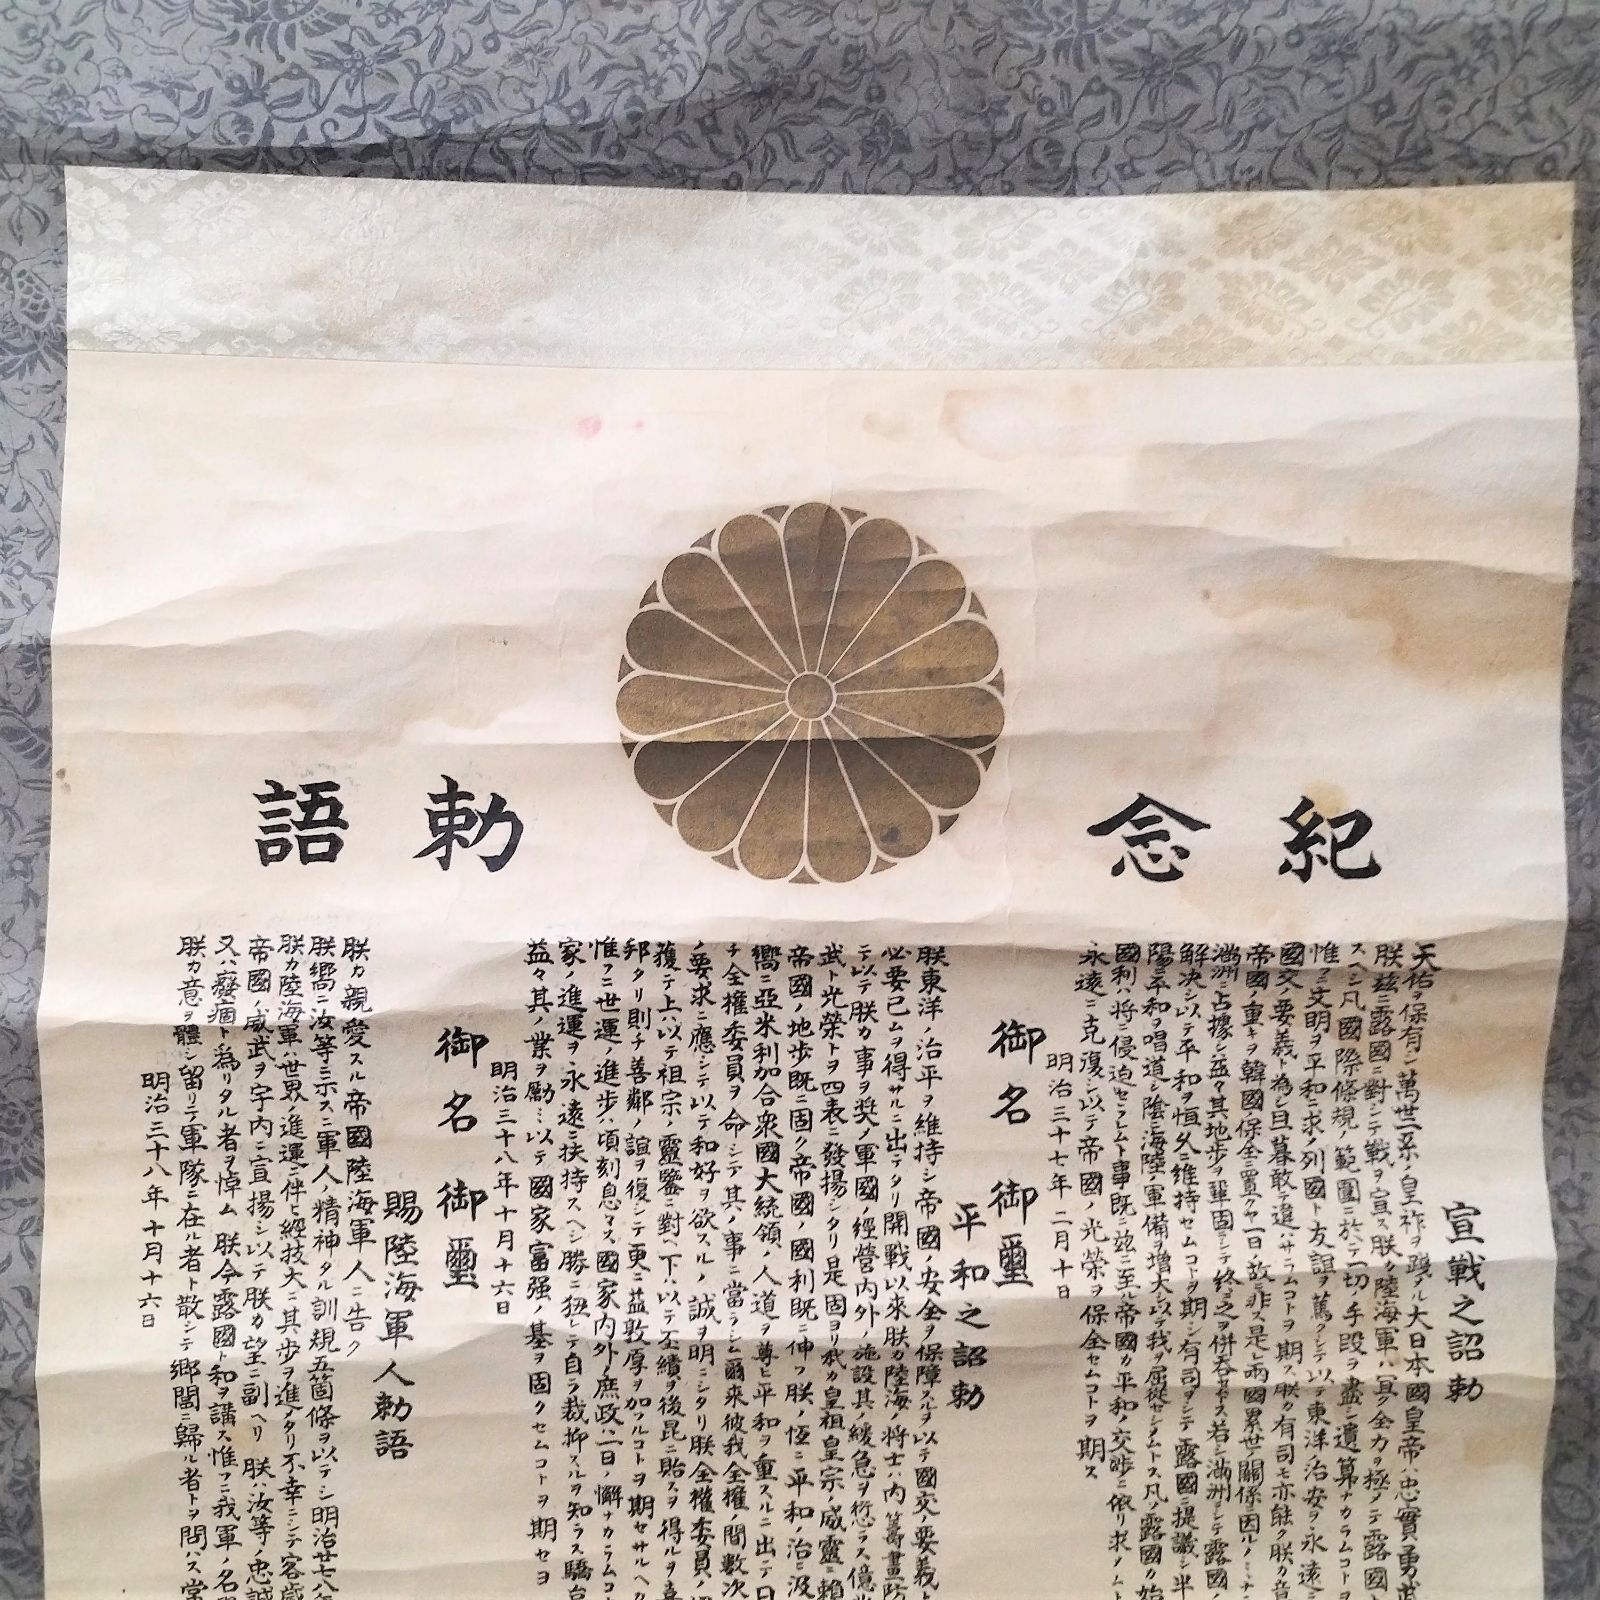 紀念勅語
宣戰之詔勅
天佑ヲ保有シ萬世一系ノ皇祚ヲ踐メル大日本國皇帝ハ忠實勇武
朕茲ニ露國ニ對シテ戰ヲ宣ス朕カ陸海軍ハ宜ク全力ヲ極メテ露國
スヘシ凡國際條規ノ範圍ニ於テ一切ノ手段ヲ盡シ遺算ナカラムコトヲ
惟フニ文明ヲ平和ニ求メ列國ト友誼ヲ篤クシテ以テ東洋ノ治安ヲ永遠ニ
國交ノ要義ト為シ旦暮敢テ違ハサラムコトヲ期ス朕カ有司モ亦能ク朕カ意
帝國ノ重キヲ韓國ノ保全ニ置クヤ一日ノ故ニ非ス是レ兩國累世ノ關係ニ因ルノミナ
滿洲ニ占據シ益々其地歩ヲ鞏固ニシテ終ニ之ヲ併呑セムトス若シ滿洲ニシテ露國ノ
解決シ以テ平和ヲ恒久ニ維持セムコトヲ期シ有司ヲシテ露國ニ提議シ半
陽ニ平和ヲ唱道シ陰ニ海陸ノ軍備ヲ増大シ以テ我ヲ屈從セシメムトス凡ソ露國カ始
國利ハ將ニ侵迫セラレムトス事既ニ茲ニ至ル帝國カ平和ノ交渉ニ依リ求メムト
永遠ニ克復シ以テ帝國ノ光榮ヲ保全セムコトヲ期ス
明治三十七年二月十日
御名御璽
平和之詔勅
朕東洋ノ治平ヲ維持シ帝國ノ安全ヲ保障スルヲ以テ國交ノ要義ト
必要已ムヲ得サルニ出テタリ開戰以來朕カ陸海ノ將士ハ内籌畫防
テ以テ朕カ事ヲ奨メ軍國ノ經營内外ノ施設其ノ緩急ヲ愆ラス億兆
武ト光榮トヲ四表ニ發揚シタリ是固ヨリ我カ皇祖皇宗ノ威靈ニ賴
帝國ノ地歩既ニ固ク帝國ノ國利既ニ伸フ朕ノ恆ニ平和ノ治ニ汲
嚮ニ亞米利加合衆國大統領ノ人道ヲ尊ヒ平和ヲ重スルニ出テ日
チ全權委員ヲ命シテ其ノ事ニ當ラシム爾來彼我全權ノ間數次
ノ要求ニ應シテ以テ和好ヲ欲スルノ誠ヲ明ニシタリ朕全權委員ノ
獲テ上ハ以テ祖宗ノ靈鑒ニ對ヘ下ハ以テ丕績ヲ後昆ニ貽スヲ得ルヲ喜
邦タリ則チ善鄰ノ誼ヲ復シテ更ニ益敦厚ヲ加フルコトヲ期セサルヘカ
惟フニ世運ノ進歩ハ頃刻息マス國家内外ノ庶政ハ一日ノ懈ナカラムコト
家ノ進運ヲ永遠ニ扶持スヘシ勝ニ狃レテ自ラ裁抑スルヲ知ラス驕怠
益々其ノ業ヲ勵ミ以テ國家富强ノ基ヲ固クセムコトヲ期セヨ
明治三十八年十月十六日
御名御璽
賜陸海軍人勅語
朕カ親愛スル帝國陸海軍人ニ告ク
朕嚮ニ汝等ニ示スニ軍人ノ精神タル訓規五箇條ヲ以テシ明治廿七八年
朕カ陸海軍ハ世界ノ進運ニ伴ヒ經技大ニ其歩ヲ進メタリ不幸ニシテ客歳
帝國ノ威武ヲ宇内ニ宣揚シ以テ朕カ望ニ副ヘリ朕ハ汝等ノ忠誠
又ハ癈痼ト爲リタル者ヲ悼ム朕今露國ト和ヲ講ス惟フニ我軍ノ名
朕カ意ヲ體シ留リテ軍隊ニ在ル者ト散シテ郷閭ニ歸ル者トヲ問ハス常
明治三十八年十月十六日